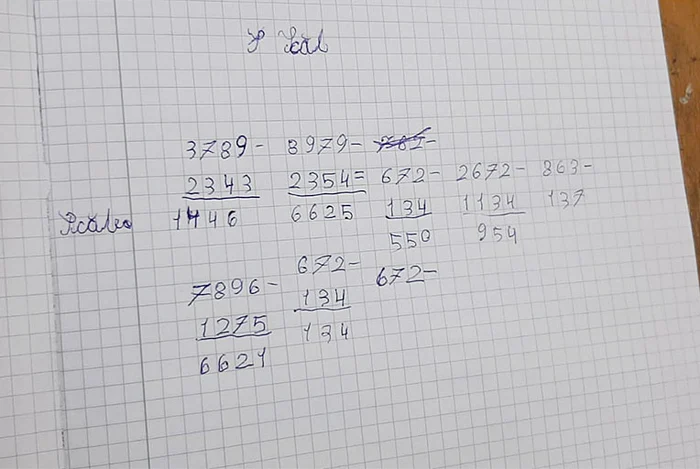 3789- 8979-
2343 2354= 672- 2672- 863-
1446 6625 134 1134 137
550 954
7896- 672- 672-
1275 134
6621 134